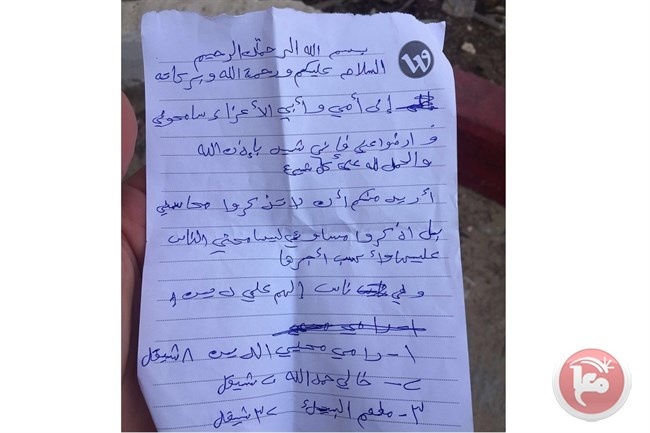 بسم الله الرحمن الرحيم
السلام عليكم ورحمة الله وبركاته
إلى أمي وأبي الأعزاء سامحوني
وارضوا عني فإني شهيد بإذن الله
والحمد لله على كل
أريد منكم أن لا تذكروا محاسني
بل اذكروا مساوئي ليسامحني الناس
عليها وأكسب أجرها
وفي ناس الهم علي دين
1- رامي محيي الدين 8 شيقل
2- خالي حمد الله 2 شيقل
3- مطعم 32 شيقل
معا